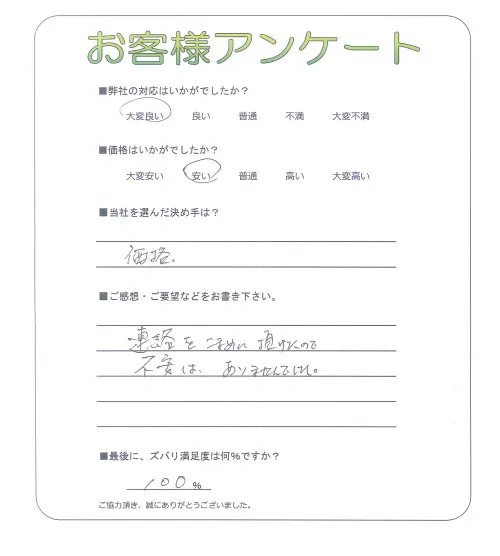 お客様アンケート
■弊社の対応はいかがでしたか？
大変良い 良い 普通 不満 大変不満
■価格はいかがでしたか？
大変安い 安い 普通 高い 大変高い
■当社を選んだ決め手は？
価格.
■ご感想・ご要望などをお書き下さい。
連絡をこまめに頂けたので
不安は、ありませんでした。
■最後に、ズバリ満足度は何%ですか？
100%
ご協力頂き、誠にありがとうございました。